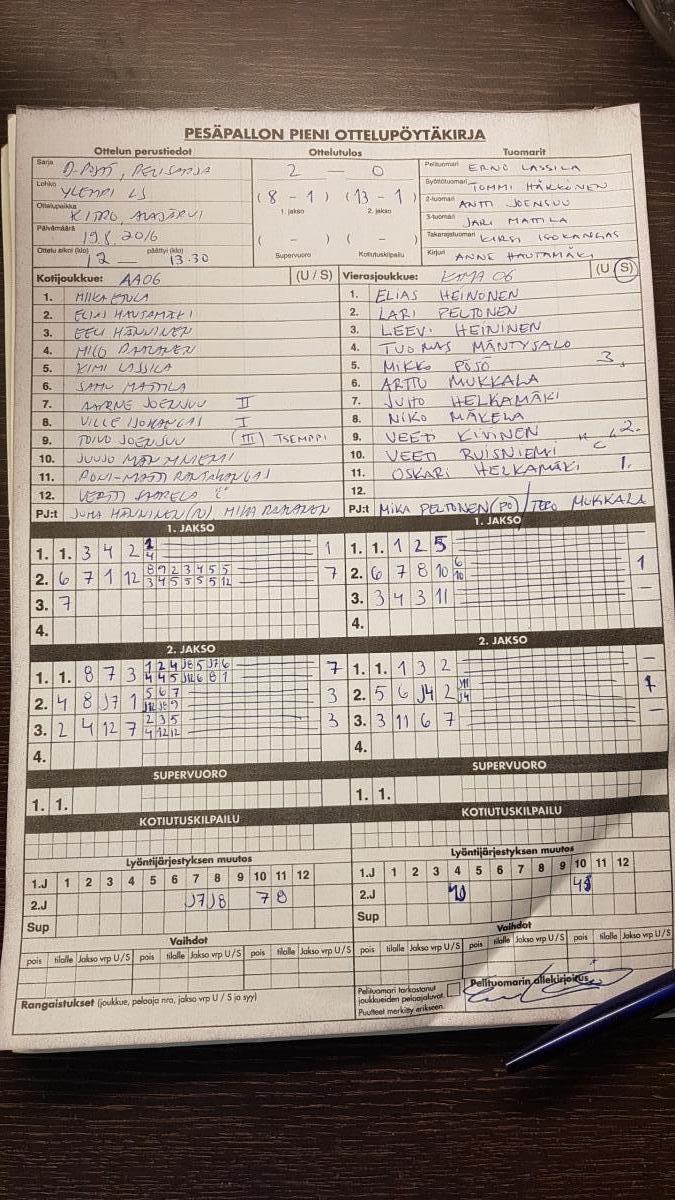 PESÄPALLON PIENI OTTELUPÖYTÄKIRJA
Ottelun perustiedot Ottelutulos Tuomarit
Sarja D-POJAT, PERUSSARJA
Lohko YLEMPI LS
Ottelupaikka KITRO, ALAJÄRVI
Päivämäärä 19.8.2016
Ottelu alkoi (klo) 12 — päättyi (klo) 13.30
2 — 0
( 8 - 1 ) ( 13 - 1 )
1. jakso 2. jakso
( - ) ( - )
Supervuoro Kotiutuskilpailu
Pelituomari ERNO LASSILA
Syöttötuomari TOMMI HÄKKINEN
2-tuomari ANTTI JOENSUU
3-tuomari JARI MATTILA
Takarajatuomari KIRSI ISOKANGAS
Kirjuri ANNE HAUTAMÄKI
Kotijoukkue: AA06 (U / S)
1. MIIKA
2. ELIAS HAUTAMÄKI
3. EELI HÄNNINEN
4. MILO
5. KIMI LASSILA
6. SAMU MATTILA
7. AARNE JOENSUU II
8. VILLE ISOKANGAS I
9. TOIVO JOENSUU (III) TSEMPPI
10. JUUSO
11. RANTAKANGAS
12. VERTTI SAARELA "C"
PJ:t JUHA HÄNNINEN (PJ) MIKA
Vierasjoukkue: KMA 06 (U / S)
1. ELIAS HEINONEN
2. LARI PELTONEN
3. LEEVI HEININEN
4. TUOMAS MÄNTYSALO
5. MIKKO PÖSÖ 3.
6. ARTTU MUKKALA
7. JUHO HELKAMÄKI
8. NIKO MÄKELÄ
9. VEETI KIVINEN 2.
10. VEETI RUISNIEMI "C"
11. OSKARI HELKAMÄKI 1.
12.
PJ:t MIKA PELTONEN (PJ) / TERO MUKKALA
1. JAKSO
1. 1. 3 4 2 1
2. 6 7 1 12 8 9 2 3 4 5 5 7
3 4 5 5 5 5 12
3. 7
4.
1. JAKSO
1. 1. 1 2 5
2. 6 7 8 10 6 1
10
3. 3 4 3 11 —
4.
2. JAKSO
1. 1. 8 7 3 1 2 4 J8 5 J7 6 7
4 4 5 J12 6 8 1
2. 4 8 J7 1 5 6 7 3
3. 2 4 12 7 2 3 5 3
4 12 12
4.
2. JAKSO
1. 1. 1 3 2 —
2. 5 6 J4 2 J11 1
J4
3. 3 11 6 7 —
4.
SUPERVUORO
1. 1.
SUPERVUORO
1. 1.
KOTIUTUSKILPAILU
KOTIUTUSKILPAILU
Lyöntijärjestyksen muutos
1.J 1 2 3 4 5 6 7 8 9 10 11 12
2.J J7 J8 7 8
Sup
Lyöntijärjestyksen muutos
1.J 1 2 3 4 5 6 7 8 9 10 11 12
2.J 10
Sup
Vaihdot
pois tilalle Jakso vrp U / S pois tilalle Jakso vrp U / S pois tilalle Jakso vrp U / S
Vaihdot
pois tilalle Jakso vrp U / S pois tilalle Jakso vrp U / S pois tilalle Jakso vrp U / S
Rangaistukset (joukkue, pelaaja nro, jakso vrp U / S ja syy)
Pelituomari tarkastanut
joukkueiden pelaajaluvat.
Puutteet merkitty erikseen.
Pelituomarin allekirjoitus